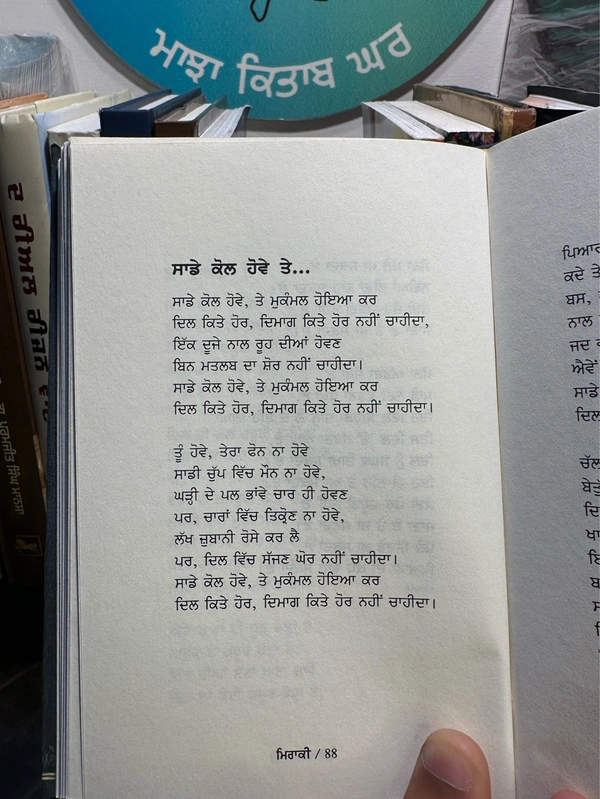 ਮਾਝਾ ਕਿਤਾਬ ਘਰ
ਸਾਡੇ ਕੋਲ ਹੋਵੇ ਤੇ...
ਸਾਡੇ ਕੋਲ ਹੋਵੇ, ਤੇ ਮੁਕੰਮਲ ਹੋਇਆ ਕਰ
ਦਿਲ ਕਿਤੇ ਹੋਰ, ਦਿਮਾਗ ਕਿਤੇ ਹੋਰ ਨਹੀਂ ਚਾਹੀਦਾ,
ਇੱਕ ਦੂਜੇ ਨਾਲ ਰੂਹ ਦੀਆਂ ਹੋਵਣ
ਬਿਨ ਮਤਲਬ ਦਾ ਸ਼ੋਰ ਨਹੀਂ ਚਾਹੀਦਾ।
ਸਾਡੇ ਕੋਲ ਹੋਵੇ, ਤੇ ਮੁਕੰਮਲ ਹੋਇਆ ਕਰ
ਦਿਲ ਕਿਤੇ ਹੋਰ, ਦਿਮਾਗ ਕਿਤੇ ਹੋਰ ਨਹੀਂ ਚਾਹੀਦਾ।
ਤੂੰ ਹੋਵੇ, ਤੇਰਾ ਫੋਨ ਨਾ ਹੋਵੇ
ਸਾਡੀ ਚੁੱਪ ਵਿੱਚ ਮੌਨ ਨਾ ਹੋਵੇ,
ਘੜੀ ਦੇ ਪਲ ਭਾਂਵੇ ਚਾਰ ਹੀ ਹੋਵਣ
ਪਰ, ਚਾਰਾਂ ਵਿੱਚ ਤਿਕ੍ਰੋਣ ਨਾ ਹੋਵੇ,
ਲੱਖ ਜ਼ੁਬਾਨੀ ਰੋਸੇ ਕਰ ਲੈ
ਪਰ, ਦਿਲ ਵਿੱਚ ਸੱਜਣ ਘੋਰ ਨਹੀਂ ਚਾਹੀਦਾ।
ਸਾਡੇ ਕੋਲ ਹੋਵੇ, ਤੇ ਮੁਕੰਮਲ ਹੋਇਆ ਕਰ
ਦਿਲ ਕਿਤੇ ਹੋਰ, ਦਿਮਾਗ ਕਿਤੇ ਹੋਰ ਨਹੀਂ ਚਾਹੀਦਾ।
ਮਿਰਾਕੀ / 88
ਕਦੇ ਤੇ
ਬਸ,
ਨਾਲ
ਜਦ
ਐਵੇਂ
ਸਾਡੇ
ਦ ਰੀਅਲ ਰੀਜ਼ਨ